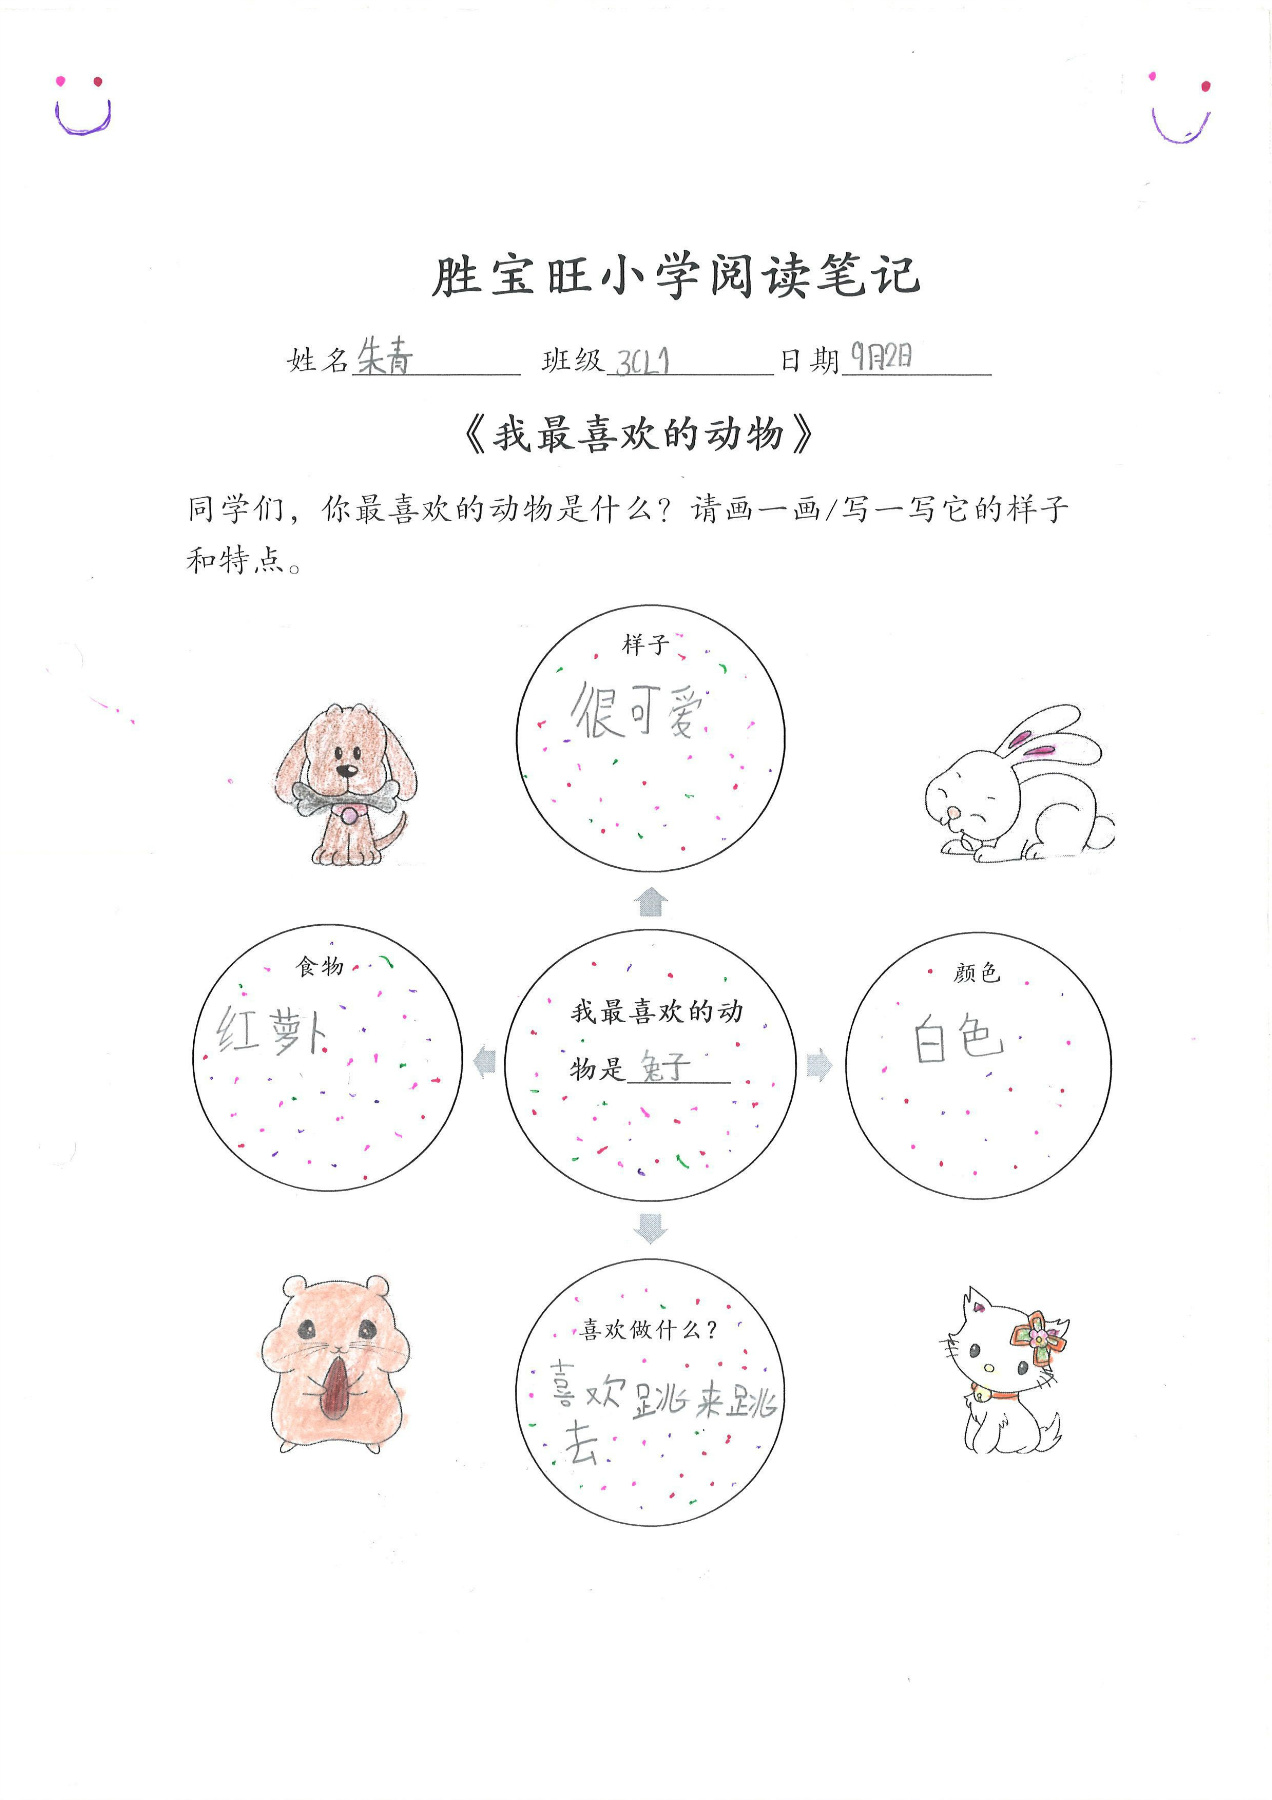 胜宝旺小学阅读笔记
姓名朱青 班级3CL1 日期9月2日
《我最喜欢的动物》
同学们，你最喜欢的动物是什么？请画一画/写一写它的样子
和特点。
样子
很可爱
食物
红萝卜
我最喜欢的动
物是兔子
颜色
白色
喜欢做什么？
喜欢跳来跳
去